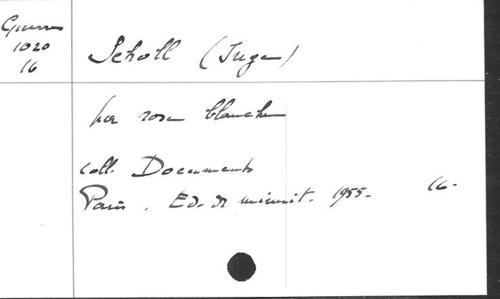 Guerres
1020
16
Scholl (Inge)
La rose blanche
coll. Documents
Paris. Ed. de minuit. 1955. 16.